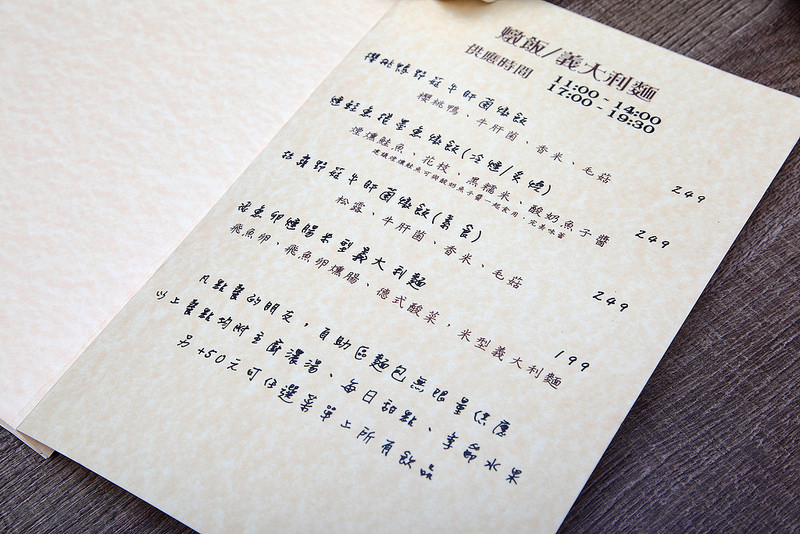 燉飯/義大利麵
供應時間 11:00 - 14:00
17:00 - 19:30
櫻桃鴨野菇牛肝菌燉飯
櫻桃鴨、牛肝菌、香米、毛菇 249
煙鮭魚花墨魚燉飯(冷燻/炙燒)
煙燻鮭魚、花枝、黑糯米、酸奶魚子醬 249
建議煙燻鮭魚可與酸奶魚子醬一起食用,完美味蕾
松露野菇牛肝菌燉飯(素食)
松露、牛肝菌、香米、毛菇 249
飛魚卵燻腸米型義大利麵
飛魚卵、飛魚卵燻腸、德式酸菜,米型義大利麵 199
凡點餐的朋友,自助區麵包無限量供應
以上餐點均附主廚濃湯、每日甜點、季節水果
另+50元可任選菜單上所有飲品